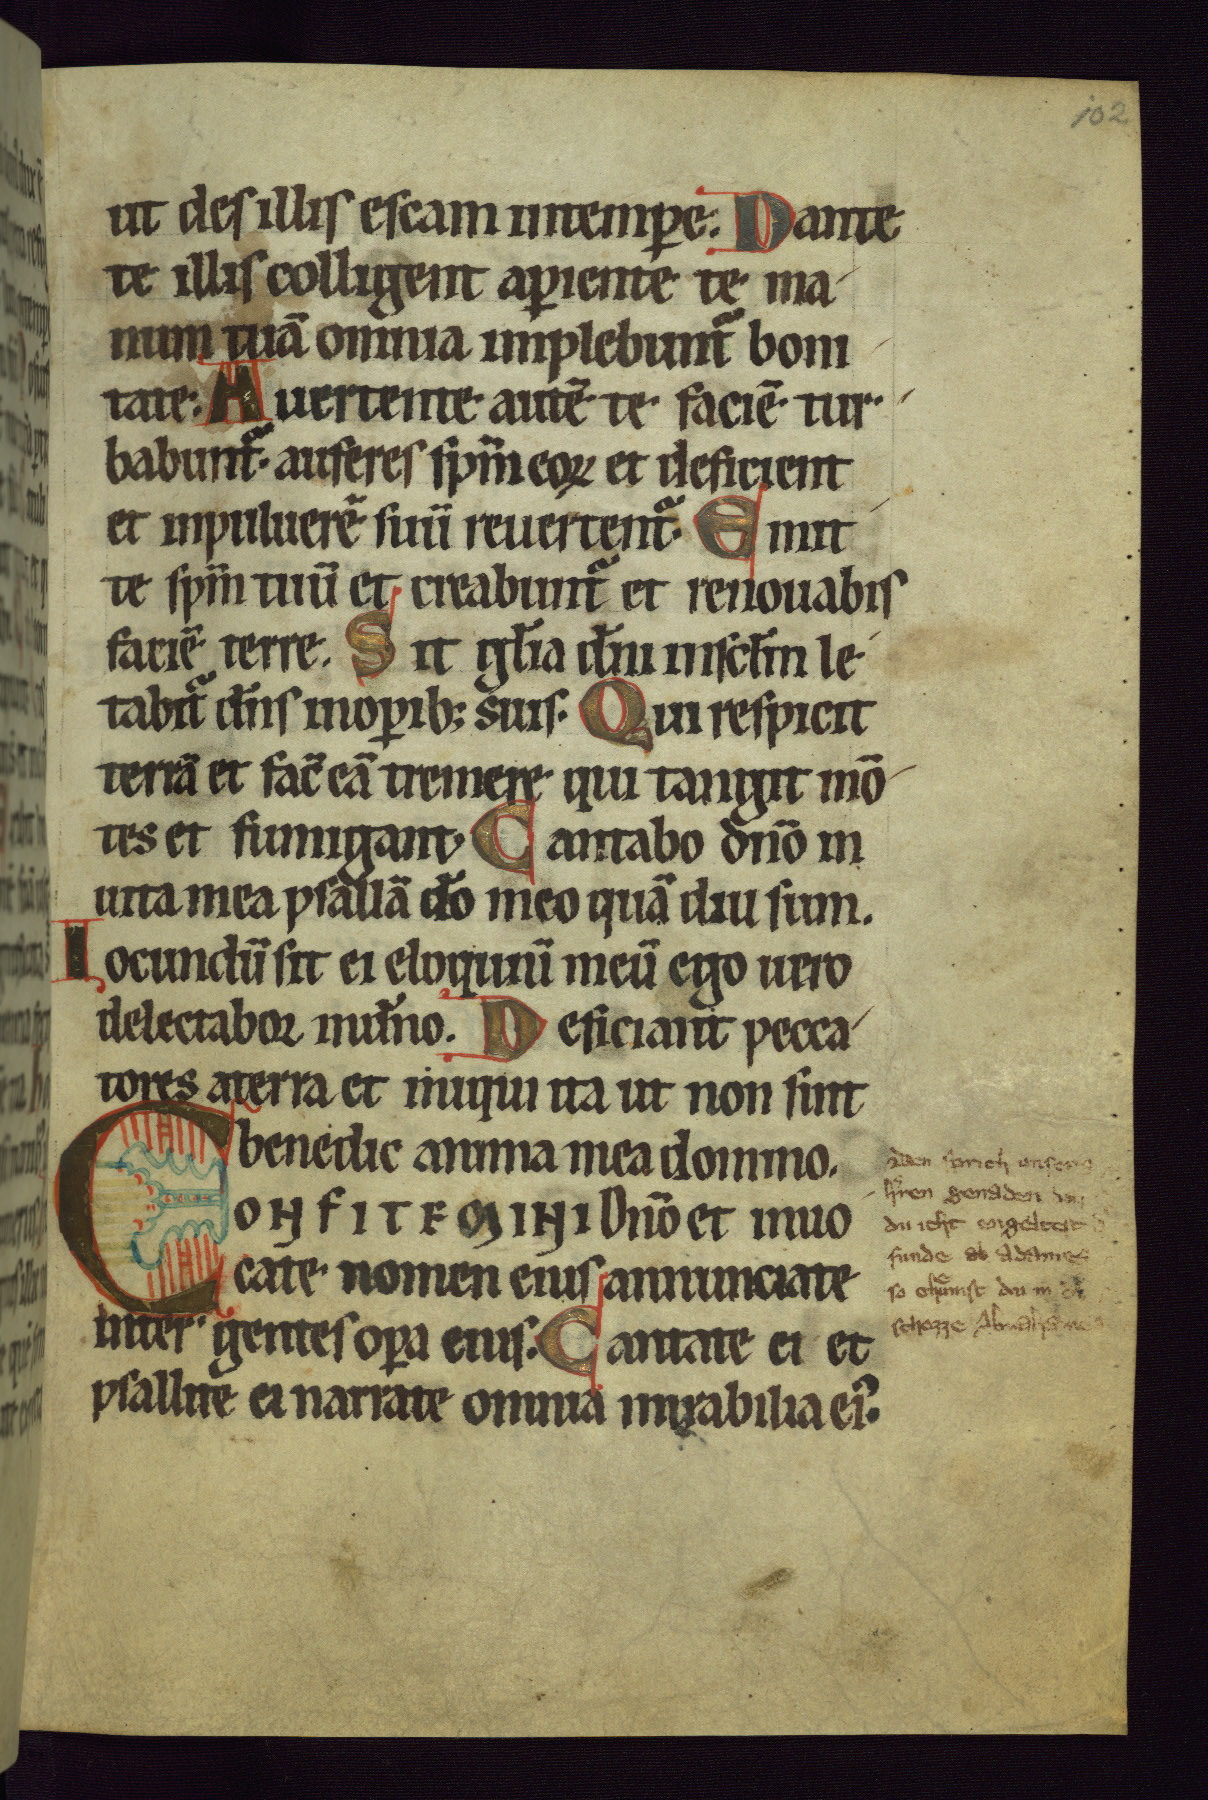 102
ut des illis escam intempꝑe. Dante
te illis colligent aꝑiente te ma
num tuā omnia implebunt᷑ boni
tate. Auertente autē te faciē tur
babunt᷑. auferes sp̄m eoꝝ et deficient
et inpuluerē suū reuertent᷑. Emit
te sp̄m tuū et creabunt᷑ et renouabis
faciē terre. Sit gl̄ia dn̄i insclm̄ le
tabit᷑ dn̄s inoꝑib; suis. Qui respicit
terrā et fac̄ eā tremere qui tangit mō
tes et fumigant. Cantabo dn̄o in
uita mea psallā dō meo quā diu sum.
Iocundū sit ei eloquiū meū ego uero
delectaboꝛ indn̄o. Deficiant pecca
tores aterra et iniqui ita ut non sint
benedic anima mea domino.
CONFITEMINI Dn̄o et inuo
cate nomen eius annunciate
inter gentes oꝑa eius. Cantate ei et
psallite ei narrate omnia mirabilia ei᷒.
den sprich unser
hren genaden
du icht engeltest
sunde Adames
so chumst du in
schozze Abrahames